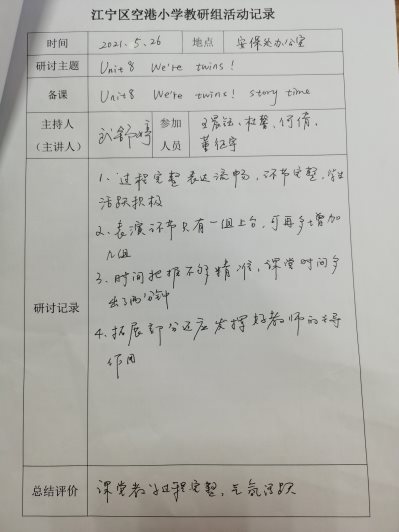 江宁区空港小学教研组活动记录
时间 2021.5.26 地点 安保处办公室
研讨主题 Unit 8 We're twins!
备课 Unit 8 We're twins! story time
主持人
(主讲人)
参加
人员
研讨记录
1、过程完整表达流畅,环节完整,学生
活跃积极
2、表演环节只有一组上台,可再多增加
几组
3、时间把握不够精准,课堂时间多
出了两分钟
4、拓展部分还应发挥好教师的主导
作用
总结评价 课堂教学过程完整,气氛活跃